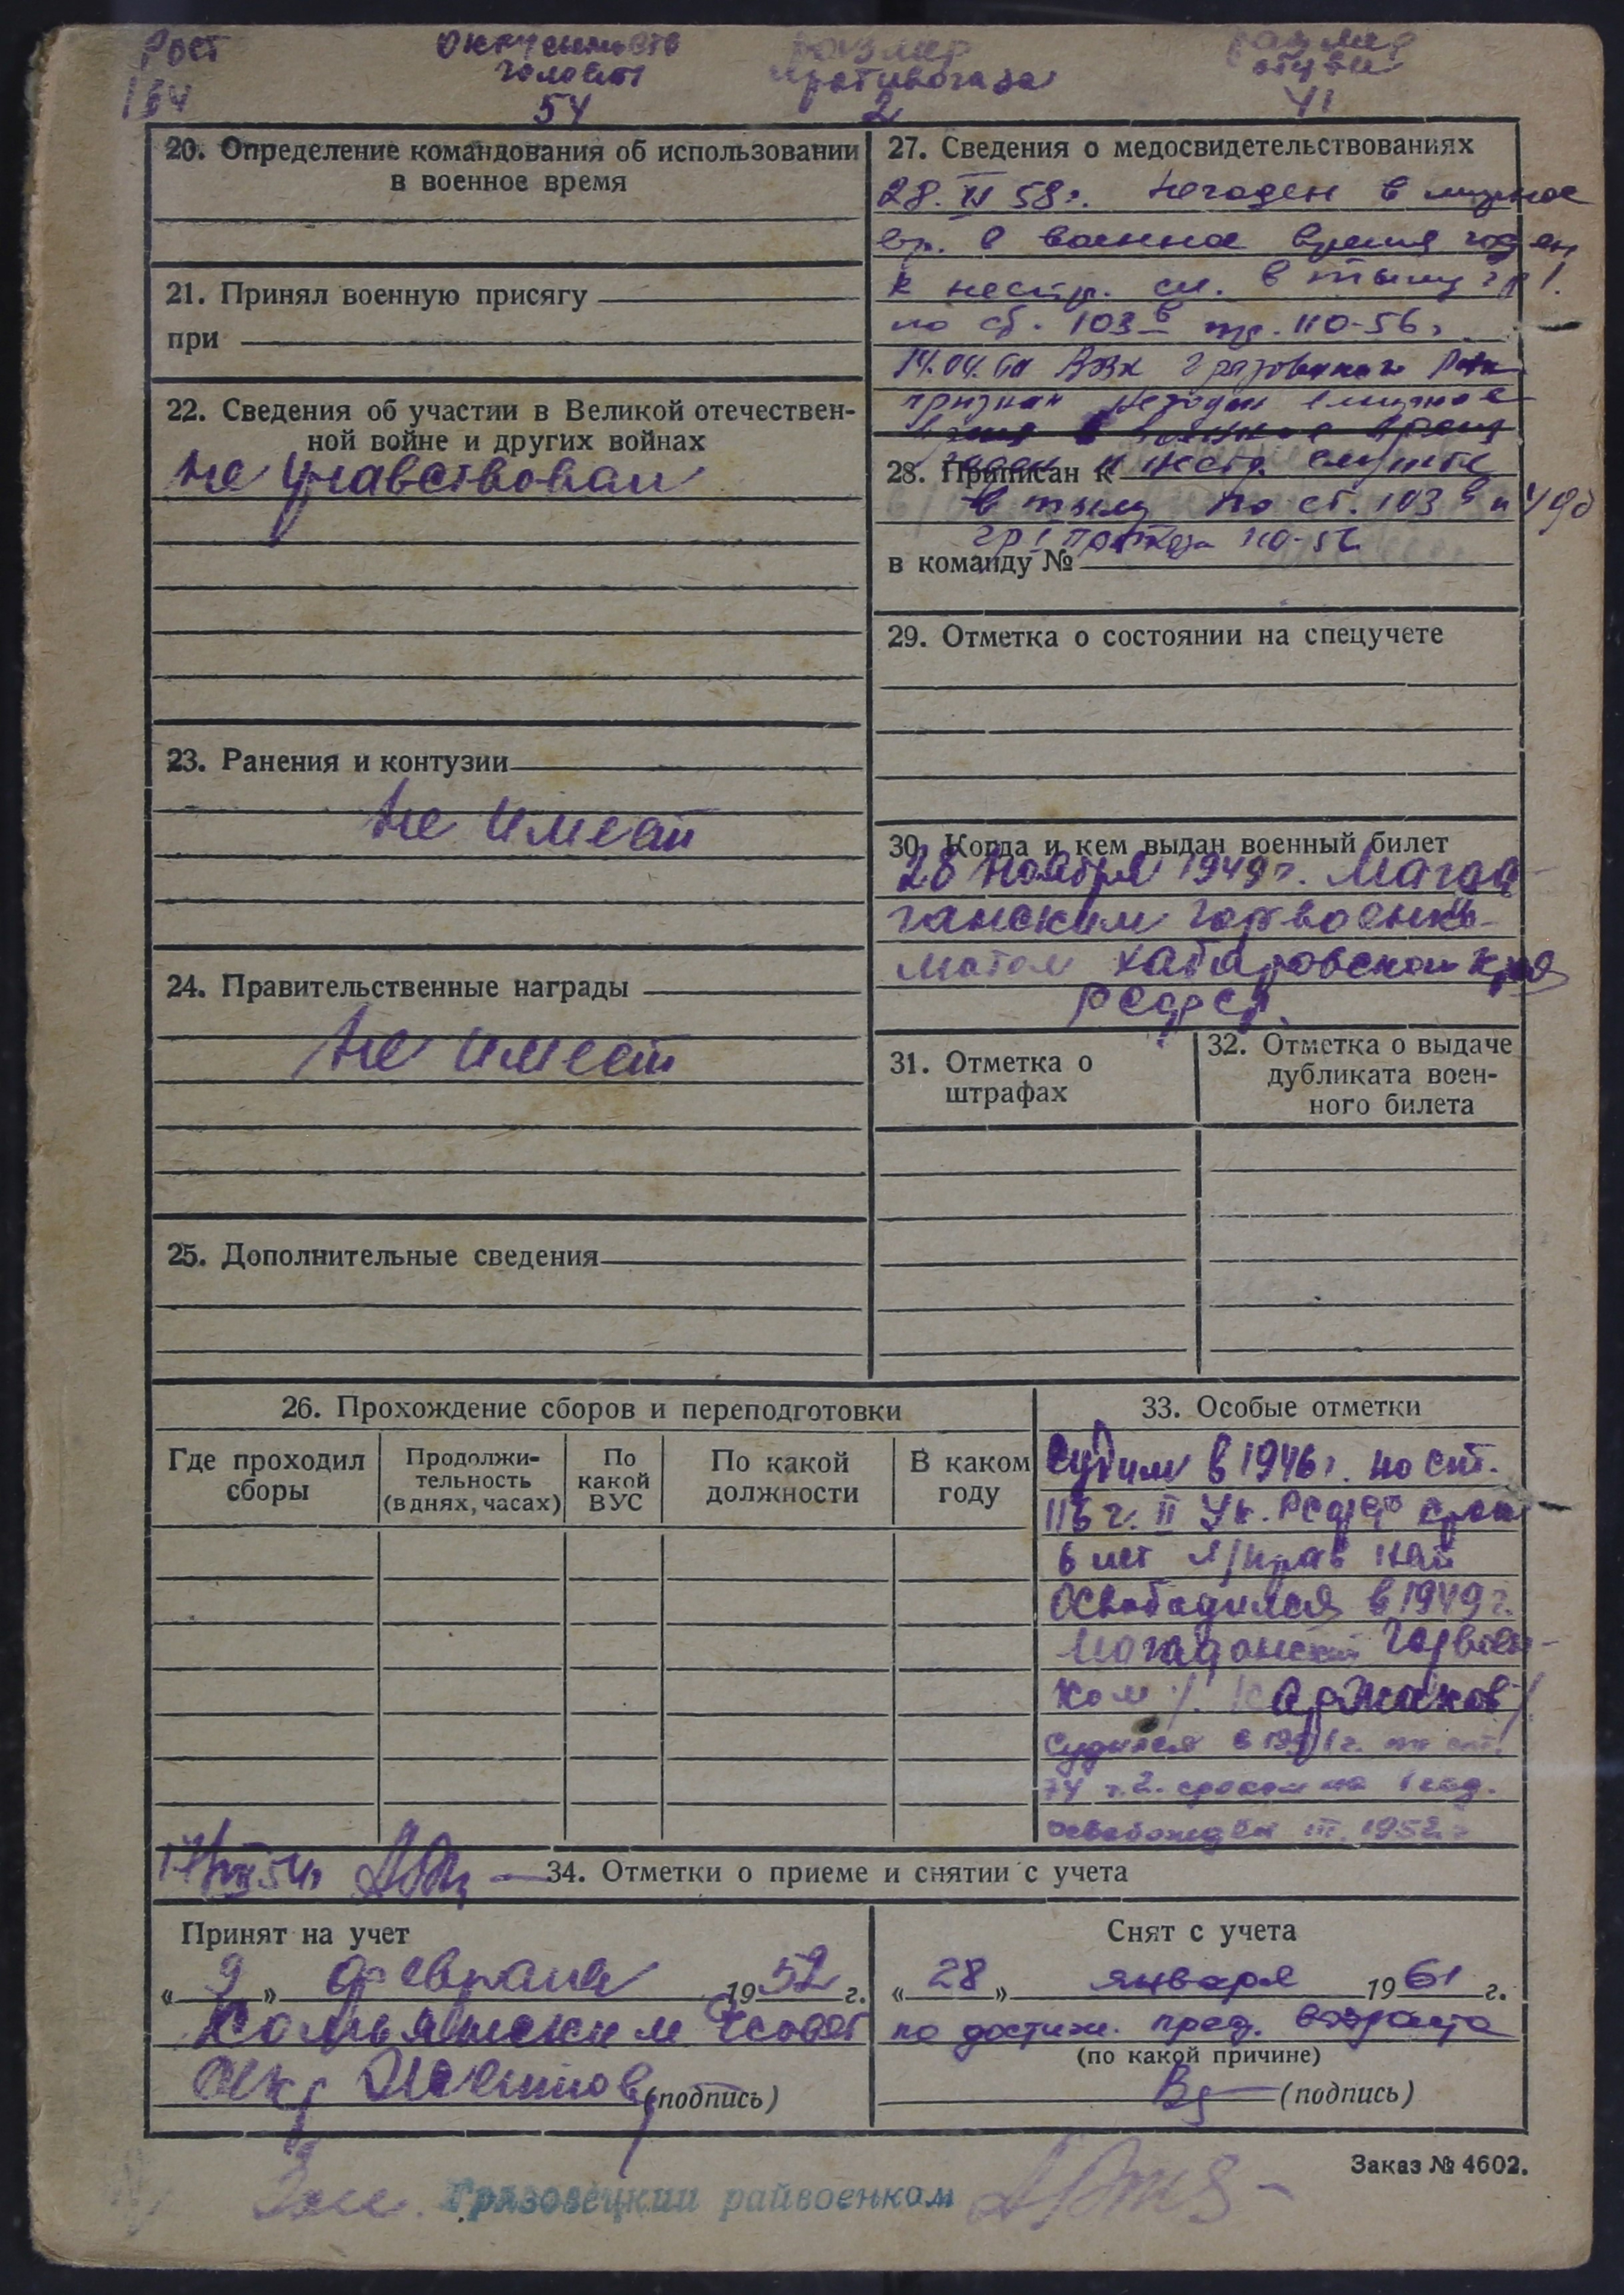 Рост
164
окружность
головы
54
размер
противогаза
2
размер
обуви
41
20. Определение командования об использовании
в военное время
21. Принял военную присягу
при
22. Сведения об участии в Великой отечествен-
ной войне и других войнах
не учавствовал
23. Ранения и контузии
не имеет
24. Правительственные награды
не имеет
25. Дополнительные сведения
27. Сведения о медосвидетельствованиях
28. VI 58г. Негоден в мирное
вр. в военное время годен
к нестр. сл. в тылу гр I.
по ст. 103 в пр. 110-56г.
14.04.60 ВВК Грязовецкого
признан негодн в мирное
время в военное время
28. Приписан к
годен к нестр. службе
в тылу по ст. 103 в и 49б
гр I приказа 110-56
в команду №
29. Отметка о состоянии на спецучете
30. Когда и кем выдан военный билет
28 ноября 1949г. Мага-
данским горвоенко-
матом Хабаровском края
РСФСР.
31. Отметка о
штрафах
32. Отметка о выдаче
дубликата воен-
ного билета
26. Прохождение сборов и переподготовки
Где проходил
сборы
Продолжи-
тельность
(в днях, часах)
По
какой
ВУС
По какой
должности
В каком
году
33. Особые отметки
Судим в 1946г. по ст.
116 ч. II Ук. РСФСР срок
6 лет п/прав нет
Освободился в 1949г.
Магаданский Горвоен-
ком /. Каржаков /
Судился в 1951г. по ст.
74 ч. 2. сроком на 1 год.
освобожден 1952г
17/VII 54г
34. Отметки о приеме и снятии с учета
Принят на учет
« 9 » февраля 1952 г.
(подпись)
Снят с учета
« 28 » января 1961 г.
по достиж. пред. возраста
(по какой причине)
(подпись)
Заказ № 4602.
Грязовецкий райвоенком